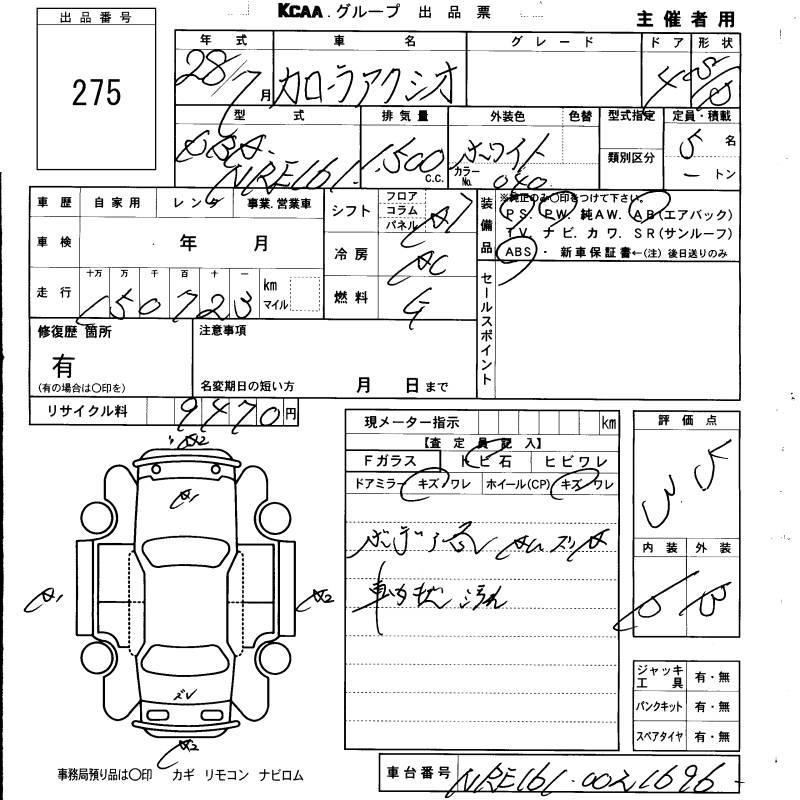 KCAA グループ 出品票
主催者用
出品番号
275
年式 車名 グレード ドア 形状
28/7月 カローラアクシオ 4
型式 排気量 外装色 色替 型式指定 定員・積載
DBA-NRE161 1,500 C.C. ホワイト カラーNo. 040 類別区分 5名
ートン
車歴 自家用 レンタ 事業.営業車
車検 年 月
走行 十万 万 千 百 十 一 km マイル
150723
シフト フロア コラム パネル AT
冷房 AC
燃料 G
装備品 ※純正のみ〇印をつけて下さい。
PS. PW. 純AW. AB(エアバック)
TV. ナビ. カワ. SR(サンルーフ)
ABS・ 新車保証書←(注) 後日送りのみ
セールスポイント
修復歴 箇所
有
(有の場合は〇印を)
注意事項
名変期日の短い方 月 日まで
リサイクル料 9470円
現メーター指示 km
【査定員記入】
Fガラス トビ石 ヒビワレ
ドアミラー キズ ワレ ホイール(CP) キズ ワレ
車内 汚れ
評価点
3.5
内装 外装
C B
A2
A1
A1
A2
A2
ジャッキ工具 有・無
パンクキット 有・無
スペアタイヤ 有・無
事務局預り品は〇印 カギ リモコン ナビロム
車台番号 NRE161-0021696